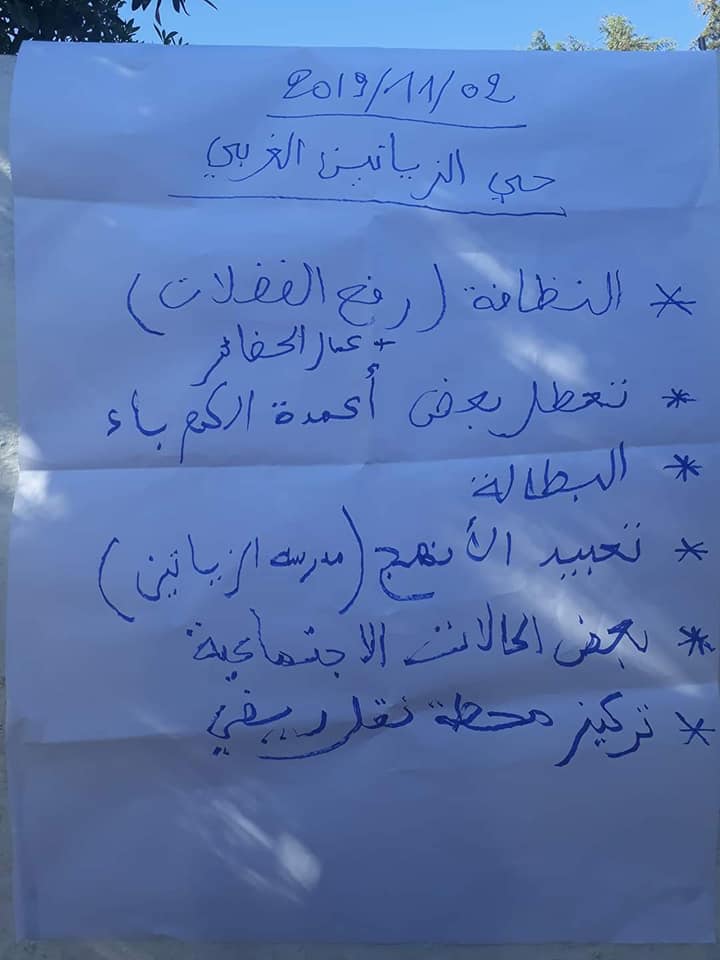 2019/11/02
حي الزياتين الغربي
* النظافة (رفع الفضلات)
+ عمال الحضائر
* تعطل بعض أعمدة الكهرباء
* البطالة
* تعبيد الأنهج (مدرسة الزياتين)
* بعض الحالات الاجتماعية
* تركيز محطة نقل ريفي